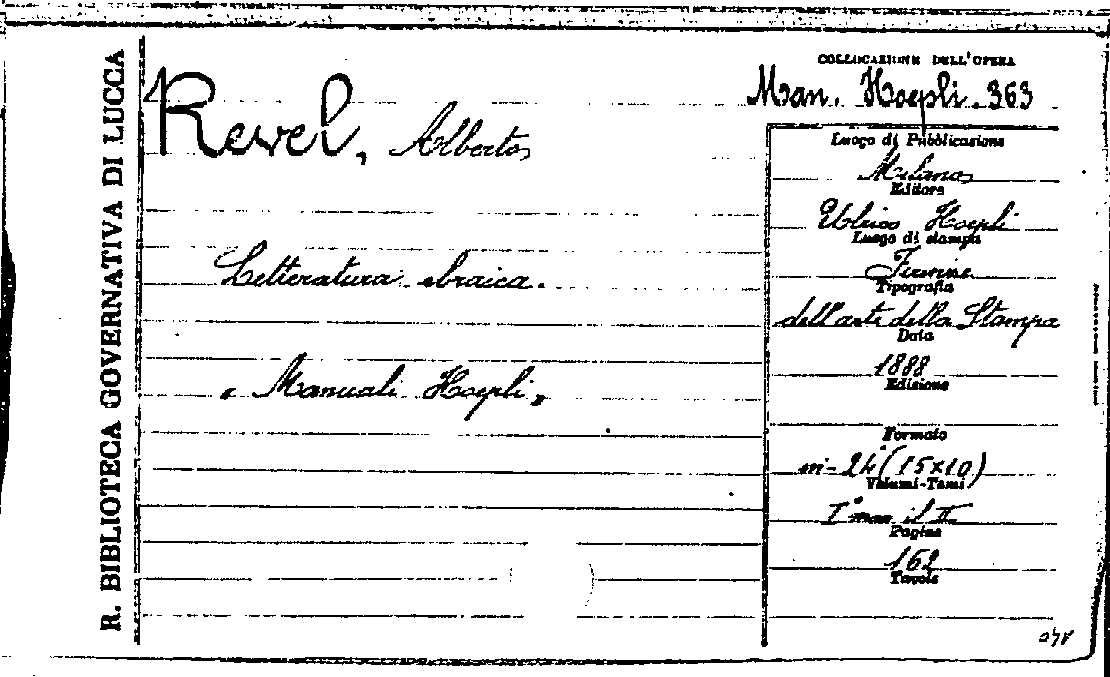 R. BIBLIOTECA GOVERNATIVA DI LUCCA
Revel, Alberto
Letteratura ebraica.
"Manuali Hoepli"
COLLOCAZIONE DELL'OPERA
Man. Hoepli. 363
Luogo di Pubblicazione
Milano
Editore
Ulrico Hoepli
Luogo di stampa
Firenze
Tipografia
dell'arte della Stampa
Data
1888
Edizione
Formato
in-24° (15×10)
Volumi-Tomi
I° il II
Pagine
162
Tavole